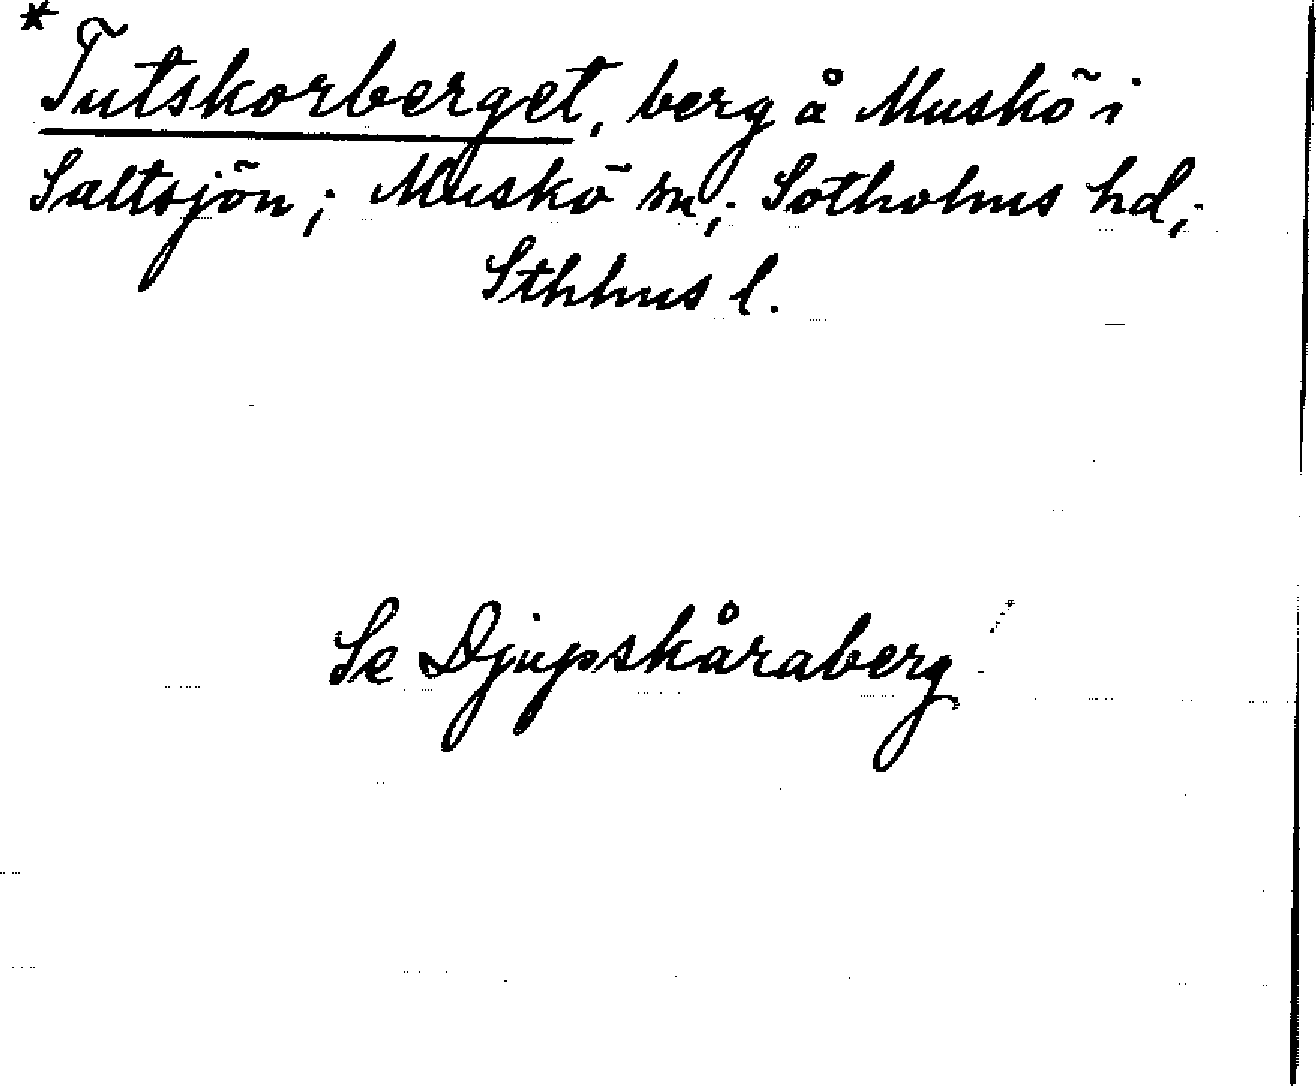 *
Tutskorberget, berg å Muskö i
Saltsjön; Muskö sn; Sotholms hd;
Sthlms l.
Se Djupskåraberg